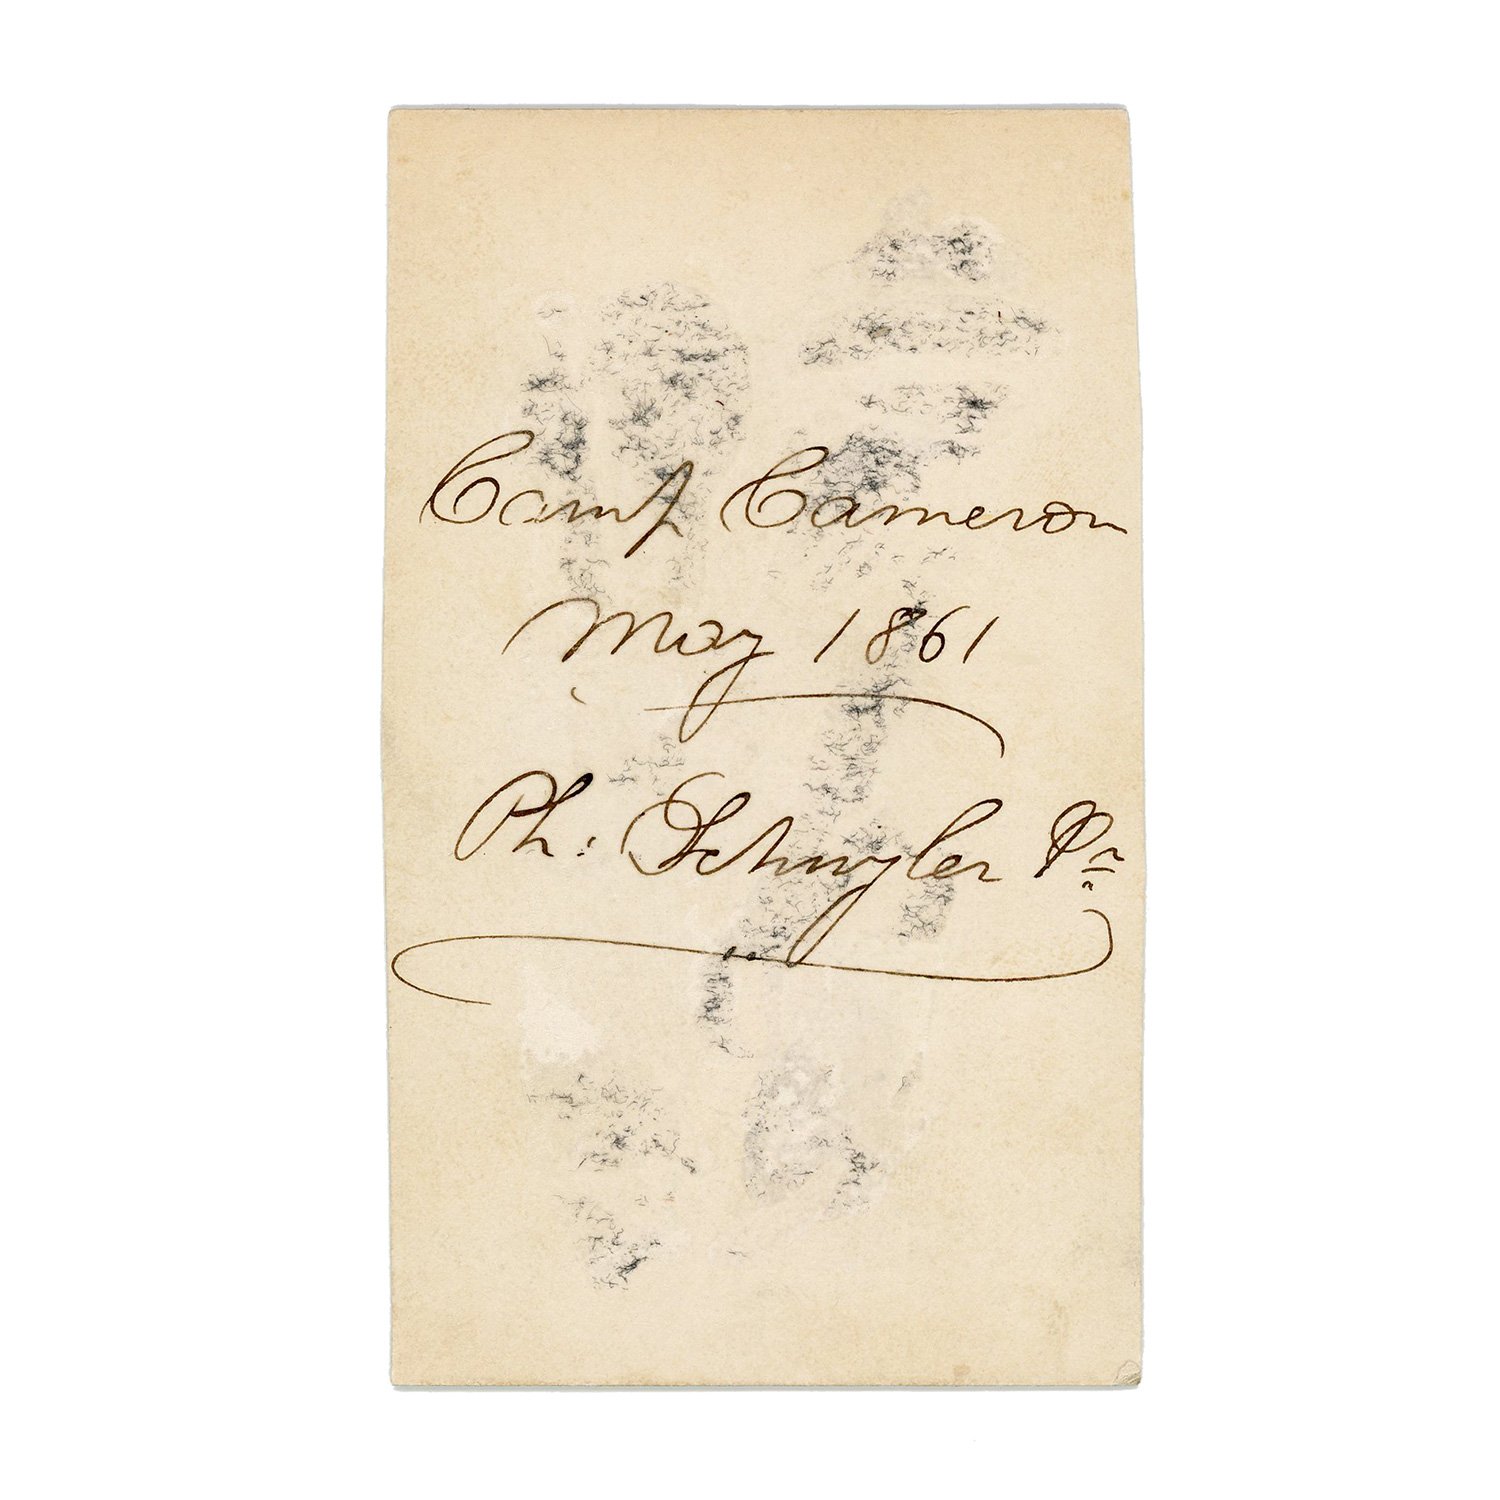 Camp Cameron
May 1861
Ph: Schuyler Jr